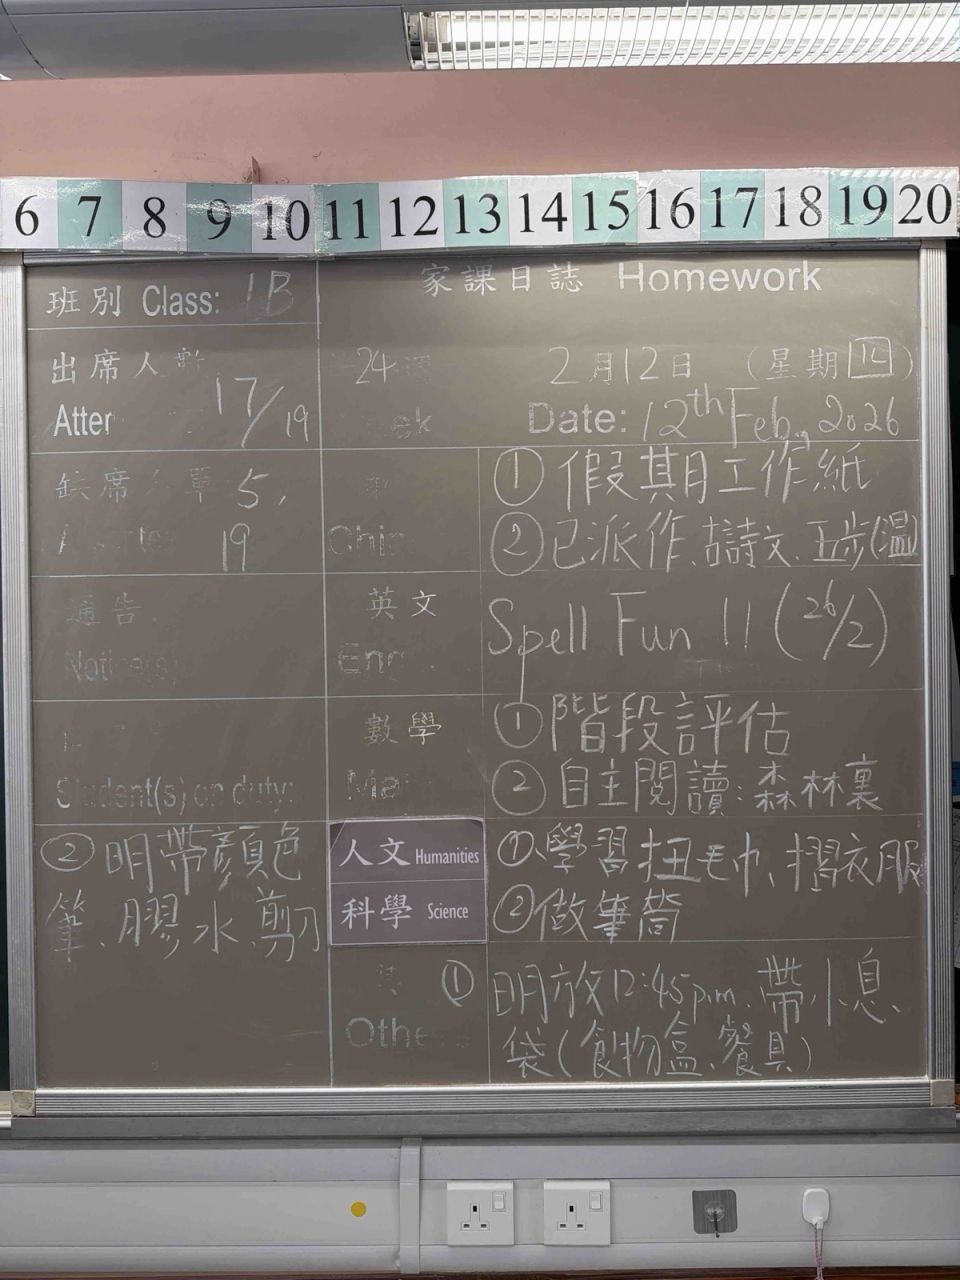 6 7 8 9 10 11 12 13 14 15 16 17 18 19 20
班別 Class: 1B
家課日誌 Homework
出席人數 17/19
24
2月12日 (星期四)
Date: 12th Feb, 2026
缺席 單 5,
19
① 假期工作紙
② 已派作、古詩文、正步(溫)
通告
英文
Spell Fun 11 (26/2)
數學
① 階段評估
② 自主閱讀:森林裏
Student(s) on duty:
人文 Humanities
科學 Science
①、學習扭毛巾、摺衣服
②做筆筒
① 明放12:45p.m. 帶小息
袋(食物盒、餐具)
② 明帶顏色
筆、膠水、剪刀